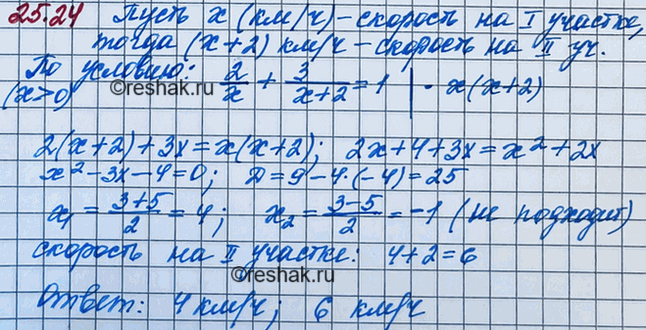 25.24 Пусть x (км/ч) – скорость на I участке,
тогда (x+2) км/ч – скорость на II уч.
По условию: 2/x + 3/(x+2) = 1 | · x(x+2)
(x>0)
©reshak.ru
2(x+2)+3x=x(x+2); 2x+4+3x=x²+2x
x²-3x-4=0; D=9-4·(-4)=25
x₁ = (3+5)/2 = 4; x₂ = (3-5)/2 = -1 (не подходит)
скорость на II участке: 4+2=6
©reshak.ru
Ответ: 4 км/ч; 6 км/ч